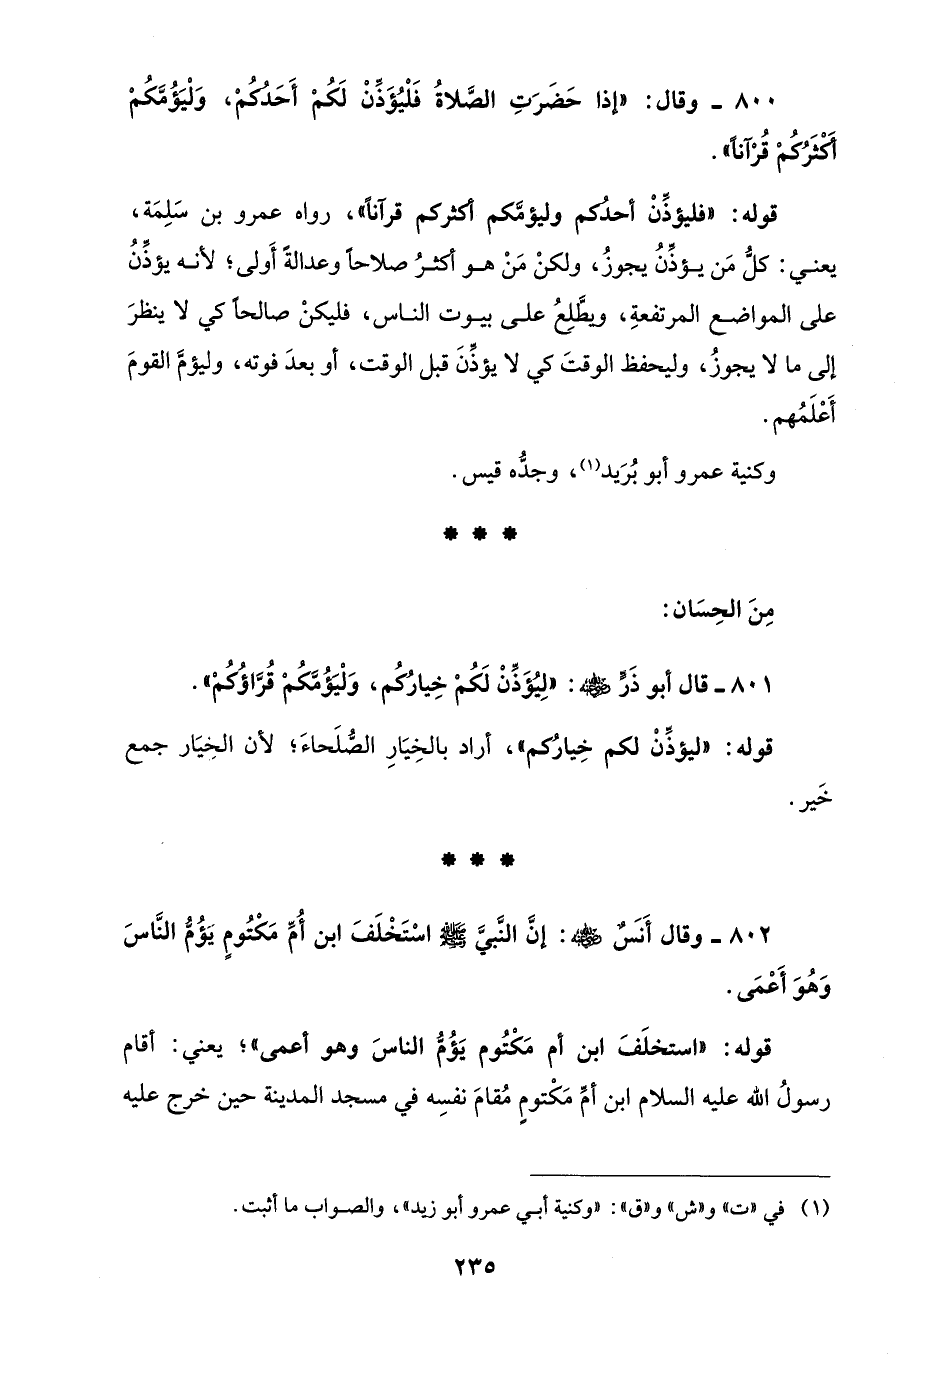 ٨٠٠ ـ وقال: «إذا حَضَرَتِ الصَّلاةُ فَلْيُؤَذِّنْ لَكُمْ أَحَدُكُمْ، وَلْيَؤُمَّكُمْ
أَكْثَرُكُمْ قُرْآناً».
قوله: «فليؤذِّنْ أحدُكم وليؤمَّكم أكثركم قرآناً»، رواه عمرو بن سَلِمَة،
يعني: كلُّ مَن يؤذِّنُ يجوزُ، ولكنْ مَنْ هو أكثرُ صلاحاً وعدالةً أَولى؛ لأنه يؤذِّنُ
على المواضع المرتفعةِ، ويطَّلِعُ على بيوت الناس، فليكنْ صالحاً كي لا ينظرَ
إلى ما لا يجوزُ، وليحفظ الوقتَ كي لا يؤذِّنَ قبل الوقت، أو بعدَ فوته، وليؤمَّ القومَ
أَعْلَمُهم.
وكنية عمرو أبو بُرَيد(١)، وجدُّه قيس.
* * *
مِنَ الحِسَان:
٨٠١ ـ قال أبو ذَرٍّ ﵁: «لِيُؤَذِّنْ لَكُمْ خِيارُكُم، وَلْيَؤُمَّكُمْ قُرَّاؤُكُمْ».
قوله: «ليؤذِّنْ لكم خِيارُكم»، أراد بالخِيَارِ الصُّلَحاءَ؛ لأن الخِيَار جمع
خَير.
* * *
٨٠٢ ـ وقال أَنَسٌ ﵁: إنَّ النَّبيَّ ﷺ اسْتَخْلَفَ ابن أُمِّ مَكْتُومٍ يَؤُمُّ النَّاسَ
وَهُوَ أَعْمَى.
قوله: «استخلَفَ ابن أم مَكْتُوم يَؤُمُّ الناسَ وهو أعمى»؛ يعني: أقام
رسولُ الله عليه السلام ابن أمِّ مَكْتومٍ مُقامَ نفسِه في مسجد المدينة حين خرج عليه
(١) في «ت» و«ش» و«ق»: «وكنية أبي عمرو أبو زيد»، والصواب ما أثبت.
٢٣٥